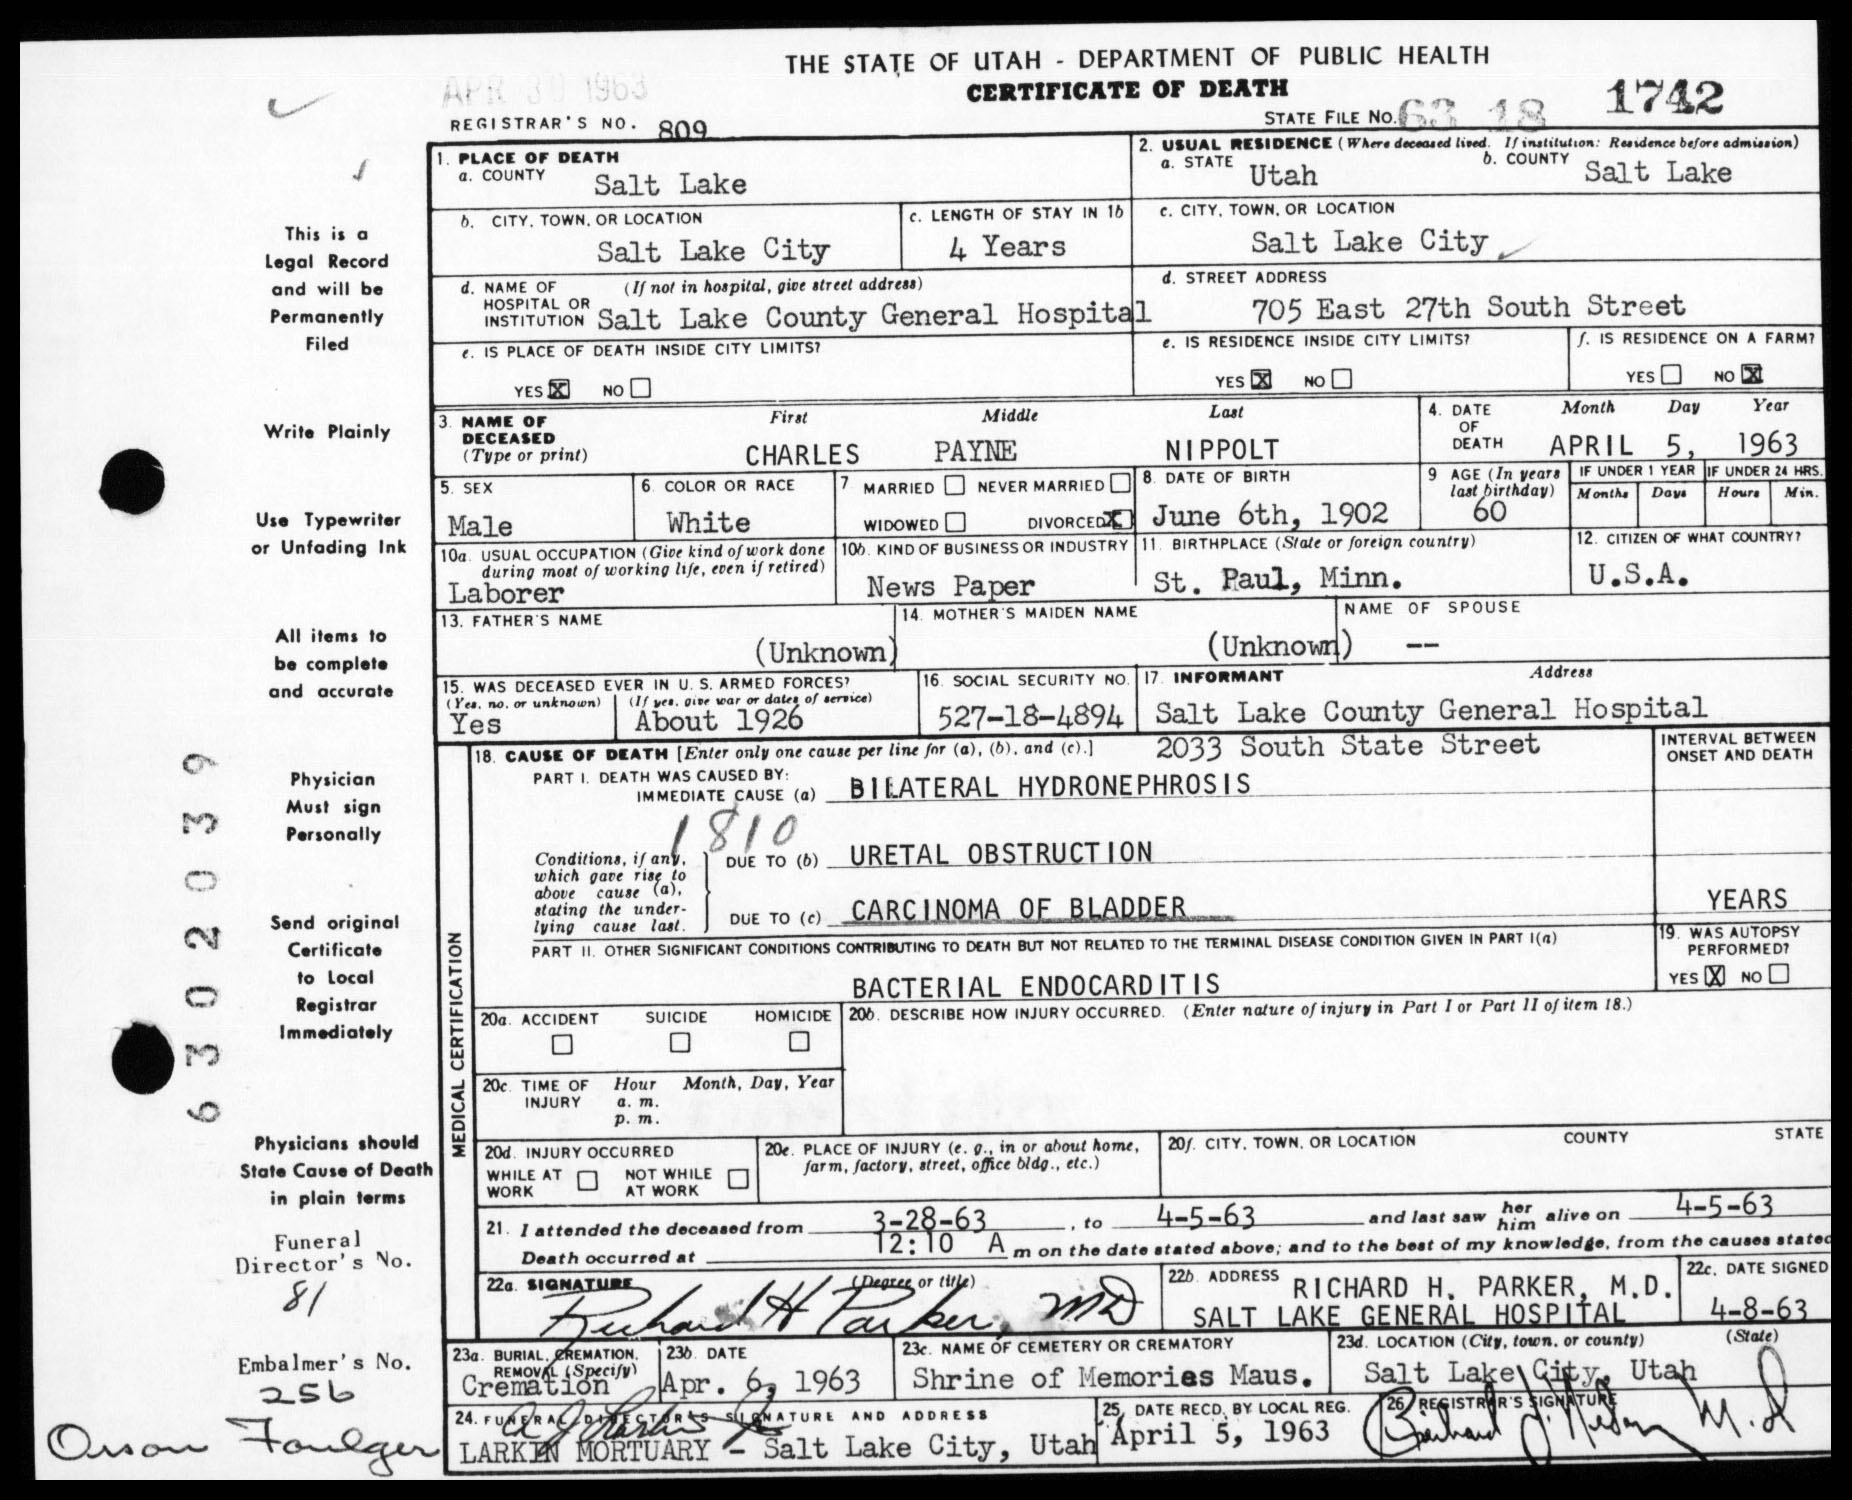 THE STATE OF UTAH - DEPARTMENT OF PUBLIC HEALTH
CERTIFICATE OF DEATH
APR 30 1963
REGISTRAR'S NO. 809
STATE FILE NO. 63 18 1742
1. PLACE OF DEATH
a. COUNTY Salt Lake
2. USUAL RESIDENCE (Where deceased lived. If institution: Residence before admission)
a. STATE Utah b. COUNTY Salt Lake
b. CITY, TOWN, OR LOCATION Salt Lake City
c. LENGTH OF STAY IN 1b 4 Years
c. CITY, TOWN, OR LOCATION Salt Lake City
d. NAME OF HOSPITAL OR INSTITUTION (If not in hospital, give street address) Salt Lake County General Hospital
d. STREET ADDRESS 705 East 27th South Street
e. IS PLACE OF DEATH INSIDE CITY LIMITS? YES X NO
e. IS RESIDENCE INSIDE CITY LIMITS? YES X NO
f. IS RESIDENCE ON A FARM? YES NO X
3. NAME OF DECEASED (Type or print) First Middle Last
CHARLES PAYNE NIPPOLT
4. DATE OF DEATH Month Day Year
APRIL 5, 1963
5. SEX Male
6. COLOR OR RACE White
7. MARRIED NEVER MARRIED WIDOWED DIVORCED X
8. DATE OF BIRTH June 6th, 1902
9 AGE (In years last birthday) 60
IF UNDER 1 YEAR Months Days
IF UNDER 24 HRS. Hours Min.
10a. USUAL OCCUPATION (Give kind of work done during most of working life, even if retired) Laborer
10b. KIND OF BUSINESS OR INDUSTRY News Paper
11. BIRTHPLACE (State or foreign country) St. Paul, Minn.
12. CITIZEN OF WHAT COUNTRY? U.S.A.
13. FATHER'S NAME (Unknown)
14. MOTHER'S MAIDEN NAME (Unknown)
NAME OF SPOUSE --
15. WAS DECEASED EVER IN U. S. ARMED FORCES?
(Yes, no, or unknown) Yes
(If yes, give war or dates of service) About 1926
16. SOCIAL SECURITY NO. 527-18-4894
17. INFORMANT Address
Salt Lake County General Hospital
2033 South State Street
MEDICAL CERTIFICATION
18. CAUSE OF DEATH [Enter only one cause per line for (a), (b), and (c).]
INTERVAL BETWEEN ONSET AND DEATH
PART I. DEATH WAS CAUSED BY:
IMMEDIATE CAUSE (a) BILATERAL HYDRONEPHROSIS
1810
Conditions, if any, which gave rise to above cause (a), stating the underlying cause last.
DUE TO (b) URETAL OBSTRUCTION
DUE TO (c) CARCINOMA OF BLADDER
YEARS
PART II. OTHER SIGNIFICANT CONDITIONS CONTRIBUTING TO DEATH BUT NOT RELATED TO THE TERMINAL DISEASE CONDITION GIVEN IN PART I(a)
BACTERIAL ENDOCARDITIS
19. WAS AUTOPSY PERFORMED? YES X NO
20a. ACCIDENT SUICIDE HOMICIDE
20b. DESCRIBE HOW INJURY OCCURRED. (Enter nature of injury in Part I or Part II of item 18.)
20c. TIME OF INJURY Hour Month, Day, Year
a. m.
p. m.
20d. INJURY OCCURRED
WHILE AT WORK NOT WHILE AT WORK
20e. PLACE OF INJURY (e. g., in or about home, farm, factory, street, office bldg., etc.)
20f. CITY, TOWN, OR LOCATION COUNTY STATE
21. I attended the deceased from 3-28-63, to 4-5-63 and last saw her him alive on 4-5-63
Death occurred at 12:10 A m on the date stated above; and to the best of my knowledge, from the causes stated
22a. SIGNATURE (Degree or title)
Richard H Parker, MD
22b. ADDRESS RICHARD H. PARKER, M.D.
SALT LAKE GENERAL HOSPITAL
22c. DATE SIGNED 4-8-63
23a. BURIAL, CREMATION, REMOVAL (Specify) Cremation
23b. DATE Apr. 6, 1963
23c. NAME OF CEMETERY OR CREMATORY Shrine of Memories Maus.
23d. LOCATION (City, town, or county) (State) Salt Lake City, Utah
24. FUNERAL DIRECTOR'S SIGNATURE AND ADDRESS
LARKIN MORTUARY - Salt Lake City, Utah
25. DATE RECD. BY LOCAL REG. April 5, 1963
26 REGISTRAR'S SIGNATURE
M.d
This is a
Legal Record
and will be
Permanently
Filed
Write Plainly
Use Typewriter
or Unfading Ink
All items to
be complete
and accurate
Physician
Must sign
Personally
Send original
Certificate
to Local
Registrar
Immediately
Physicians should
State Cause of Death
in plain terms
Funeral
Director's No.
81
Embalmer's No.
256
Orson Foulger
6302039